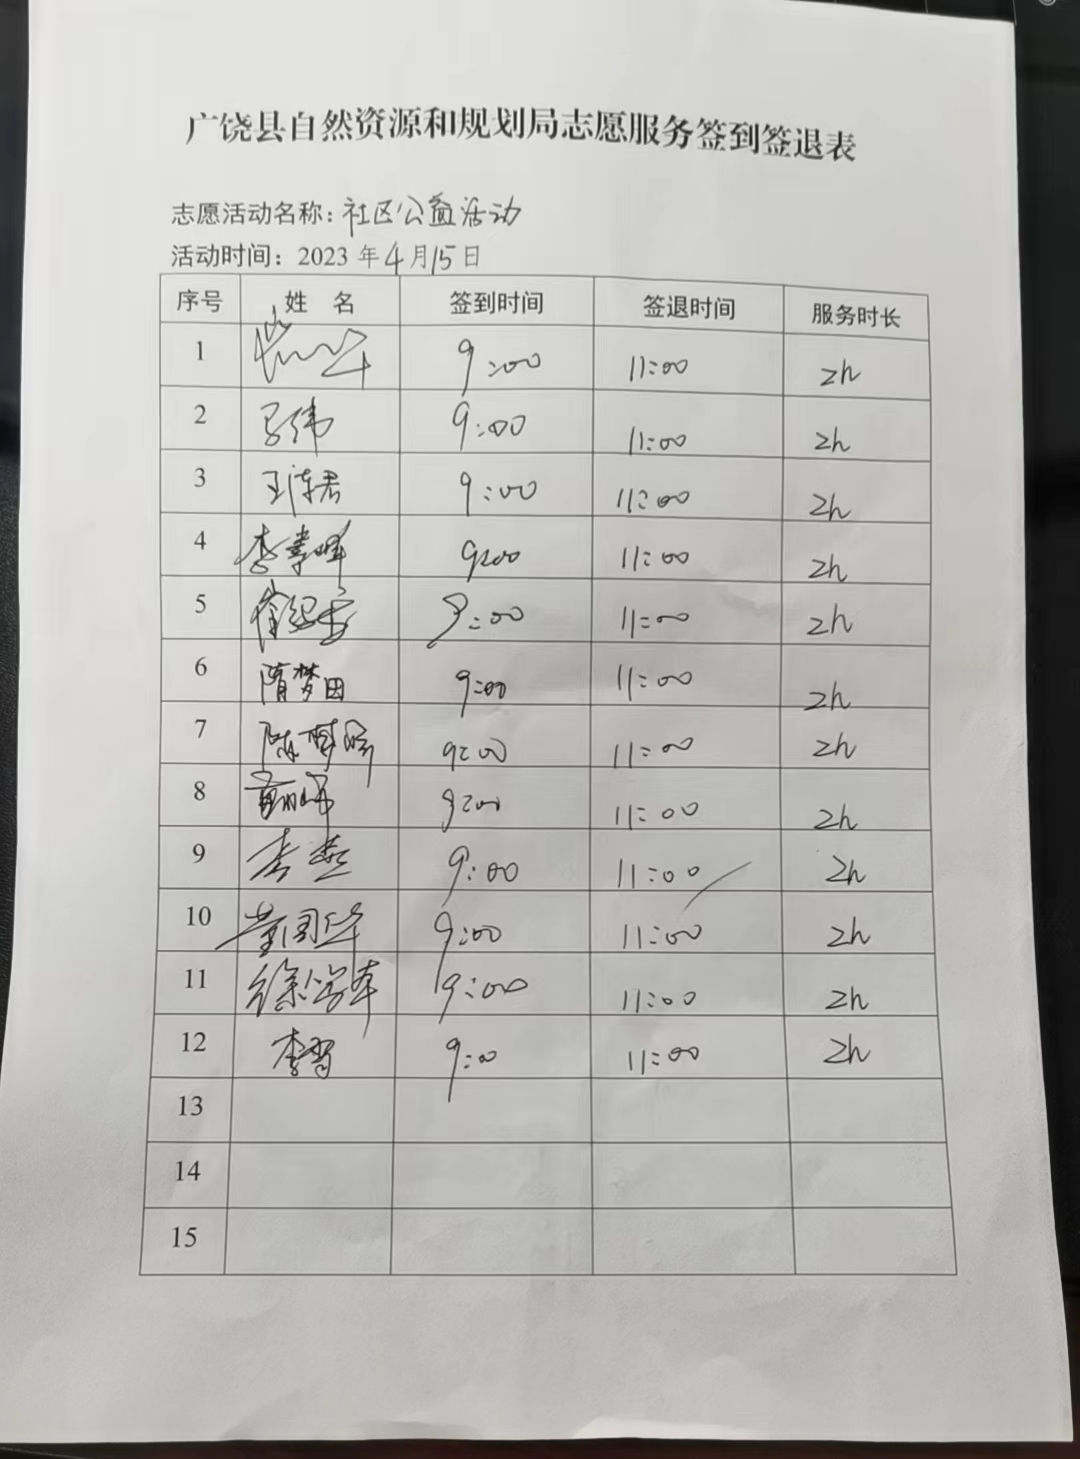 广饶县自然资源和规划局志愿服务签到签退表
志愿活动名称：社区公益活动
活动时间：2023 年 4 月 15 日
序号 姓 名 签到时间 签退时间 服务时长
1 9:00 11:00 2h
2 马伟 9:00 11:00 2h
3 9:00 11:00 2h
4 9:00 11:00 2h
5 9:00 11:00 2h
6 隋梦田 9:00 11:00 2h
7 9:00 11:00 2h
8 9:00 11:00 2h
9 李燕 9:00 11:00 2h
10 9:00 11:00 2h
11 9:00 11:00 2h
12 9:00 11:00 2h
13
14
15